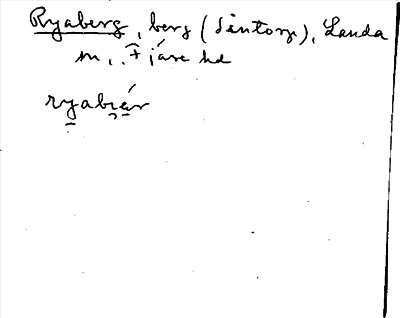 Ryaberg, berg (Sintorp), Landa
sn, Fjäre hd
ryabiǽr